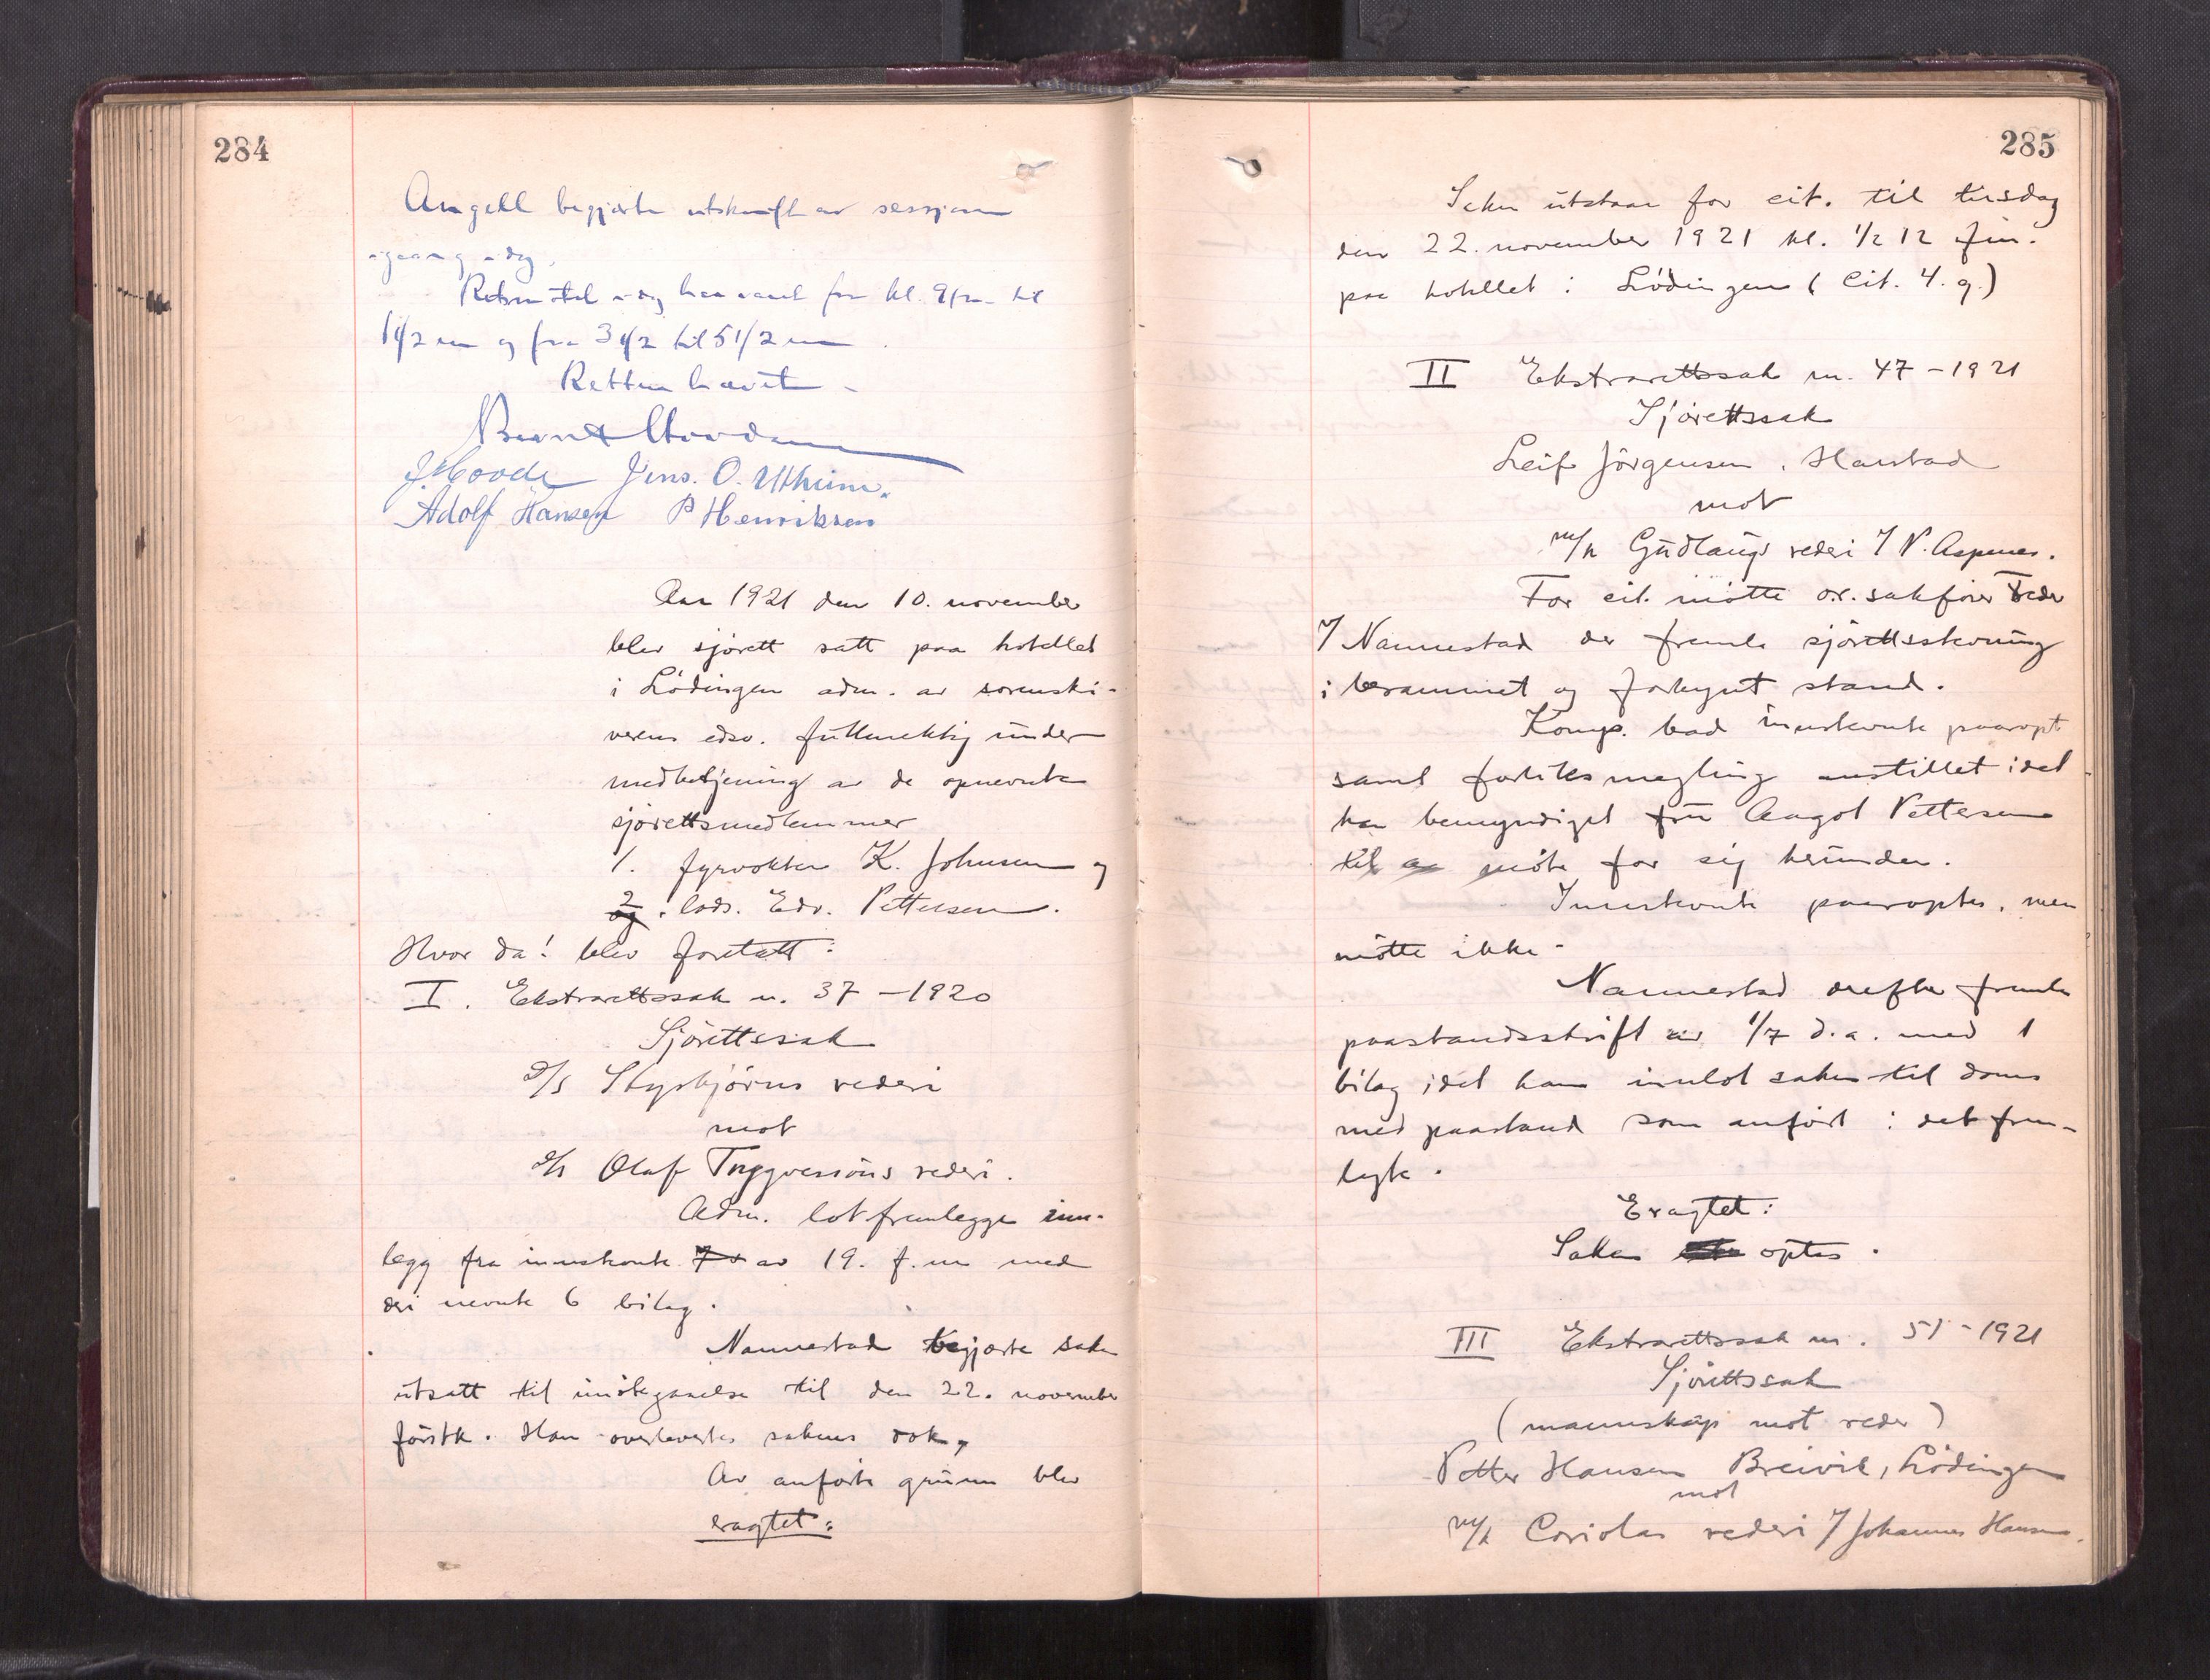 284
Angell begjærte utskrift av sessjonen
igang idag.
Retsmötet idag har varet fra kl. 9 fm. til
1 1/2 em og fra 3 1/2 til 5 1/2 em.
Retten hævet.
Jens. O. Utheim.
Adolf Hansen P Henriksen
Aar 1921 den 10. november
blev sjörett satt paa hotellet
i Lödingen adm. av sorenskri-
verens edsv. fullmektig under
medbetjening av de opnevnte
sjörettsmedlemmer
1. fyrvokter K. Johnsen og
2. lods. Edv. Pettersen.
Hvor da! blev foretatt:
I. Ekstrarettssak n. 37 - 1920
Sjörettssak
D/S Styrbjörns rederi
mot
D/S Olaf Tryggvessöns rederi.
Adm. lot fremlegge inn-
legg fra innstevnte av 19. f.m. med
deri nevnte 6 bilag.
Nannestad begjærte saken
utsatt til imötegaaelse til den 22. november
förstk. Han overlevertes sakens dok,
Av anförte grunn blev
eragtet:
285
Saken utstaar for cit. til tirsdag
den 22. november 1921 kl. 1/2 12 fm.
paa hotellet i Lödingen (Cit. 4. g.)
II Ekstrarettssak nr. 47 - 1921
Sjörettssak
Leif Jörgensen, Harstad
mot
m/k Gudlaugs rederi v/ P. Aspenes.
For cit. mötte o.r. sakförer Feder
v/ Nannestad der fremla sjörettsstevning
i berammet og forkynt stand.
Komp. bad innstevnte paaropt
samt forliksmegling anstillet idet
han bemyndiget fru Aagot Pettersen
til aa möte for sig herunder.
Innstevnte paaroptes, men
mötte ikke.
Nannestad derefter fremla
paastandsskrift av 1/7 d.a. med 1
bilag idet han innlot saken til doms
med paastand som anfört i det frem-
lagte.
Eragtet:
Saken optas.
III Ekstrarettssak nr. 51 - 1921
Sjörettssak
(mannskap mot reder)
Petter Hansen Breivik, Lödingen
mot
m/k Coriolan rederi v/ Johannes Hansen.